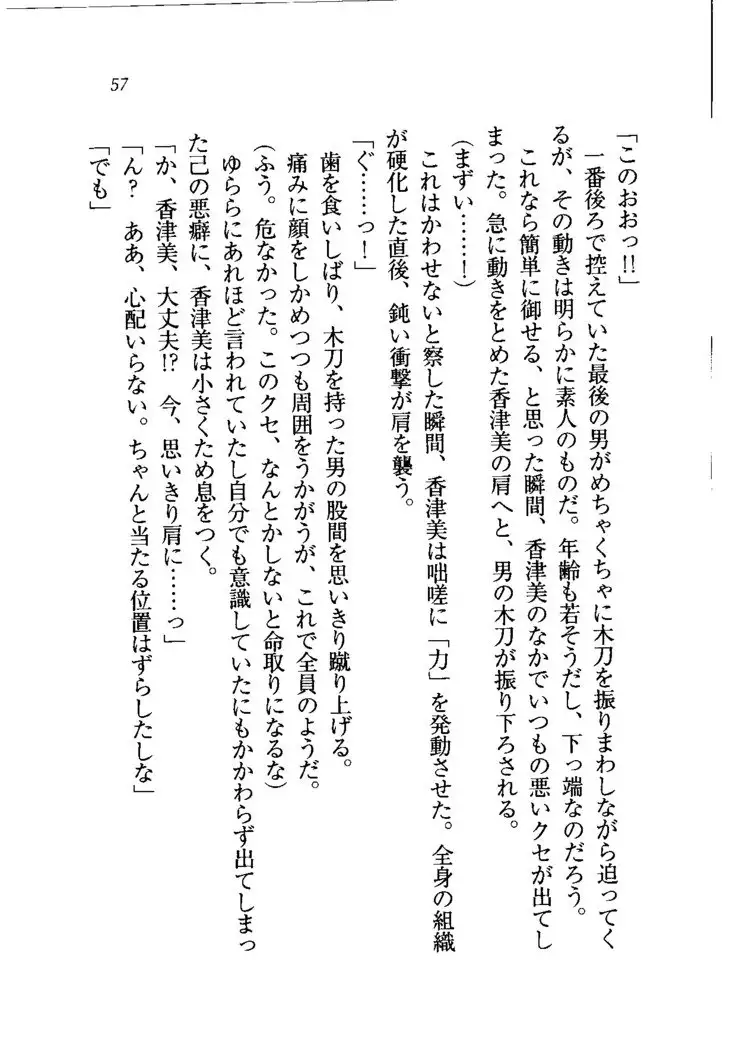 57
「このおおっ!!」
　一番後ろで控えていた最後の男がめちゃくちゃに木刀を振りまわしながら迫ってく
るが、その動きは明らかに素人のものだ。年齢も若そうだし、下っ端なのだろう。
　これなら簡単に御せる、と思った瞬間、香津美のなかでいつもの悪いクセが出てし
まった。急に動きをとめた香津美の肩へと、男の木刀が振り下ろされる。
（まずい……！）
　これはかわせないと察した瞬間、香津美は咄嗟に「力」を発動させた。全身の組織
が硬化した直後、鈍い衝撃が肩を襲う。
「ぐ……っ！」
　歯を食いしばり、木刀を持った男の股間を思いきり蹴り上げる。
　痛みに顔をしかめつつも周囲をうかがうが、これで全員のようだ。
（ふう。危なかった。このクセ、なんとかしないと命取りになるな）
　ゆららにあれほど言われていたし自分でも意識していたにもかかわらず出てしまっ
た己の悪癖に、香津美は小さくため息をつく。
「か、香津美、大丈夫!?　今、思いきり肩に……っ」
「ん？　ああ、心配いらない。ちゃんと当たる位置はずらしたしな」
「でも」